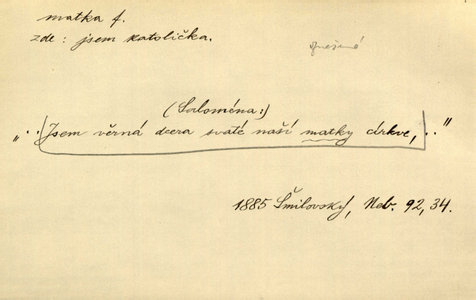 matka f.
zde: jsem katolička.
(Saloména:)
„..Jsem věrná dcera svaté naší matky církve,.."
1885 Šmilovský, Neb. 92, 34.